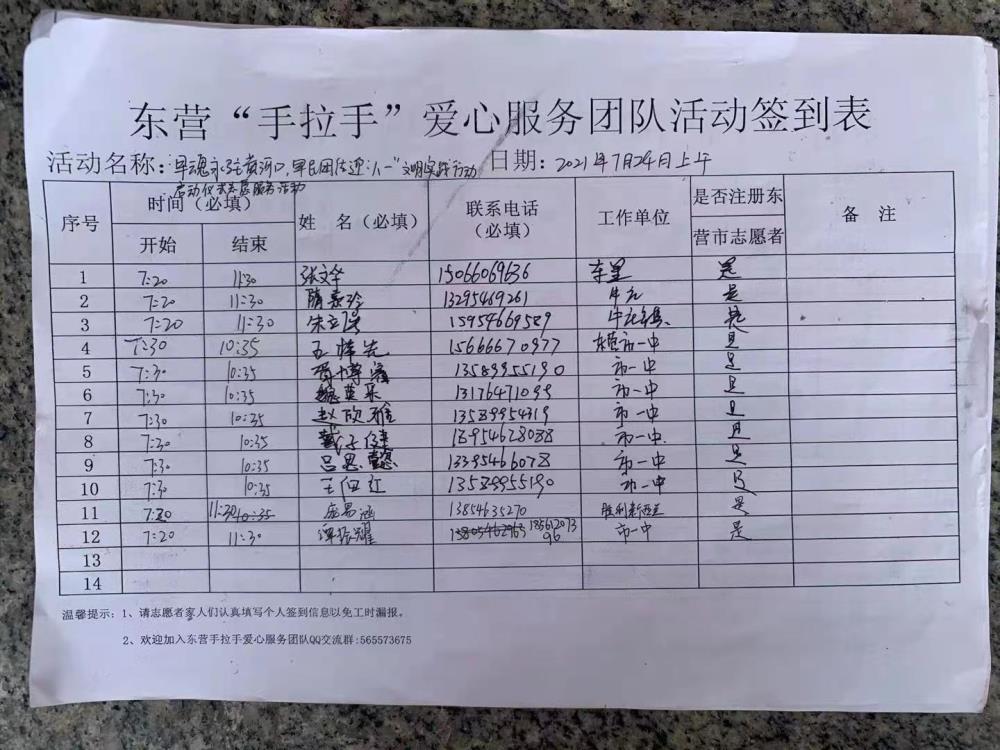 东营“手拉手”爱心服务团队活动签到表
活动名称：军魂永驻黄河口，军民团结迎“八一”文明实践行动 日期：2021年7月24日上午
启动仪式志愿服务活动
序号 时间（必填） 姓 名（必填） 联系电话（必填） 工作单位 是否注册东营市志愿者 备 注
开始 结束
1 7:20 11:30 张文华 15066069636 是
2 7:20 11:30 隋素玲 13295469261 牛庄 是
3 7:20 11:30 15954669589 是
4 7:30 10:35 15666670977 东营市一中 是
5 7:30 10:35 13589955190 市一中 是
6 7:30 10:35 13176471099 市一中 是
7 7:30 10:35 赵欣雅 13589954319 市一中 是
8 7:30 10:35 戴子健 18954628088 市一中 是
9 7:30 10:35 吕思懿 13395466078 市一中 是
10 7:30 10:35 13589955190 市一中 是
11 7:20 11:30 10:35 13854635270 是
12 7:20 11:30 谭振耀 15805462963 18561207396 市一中 是
13
14
温馨提示：1、请志愿者家人们认真填写个人签到信息以免工时漏报。
2、欢迎加入东营手拉手爱心服务团队QQ交流群:565573675